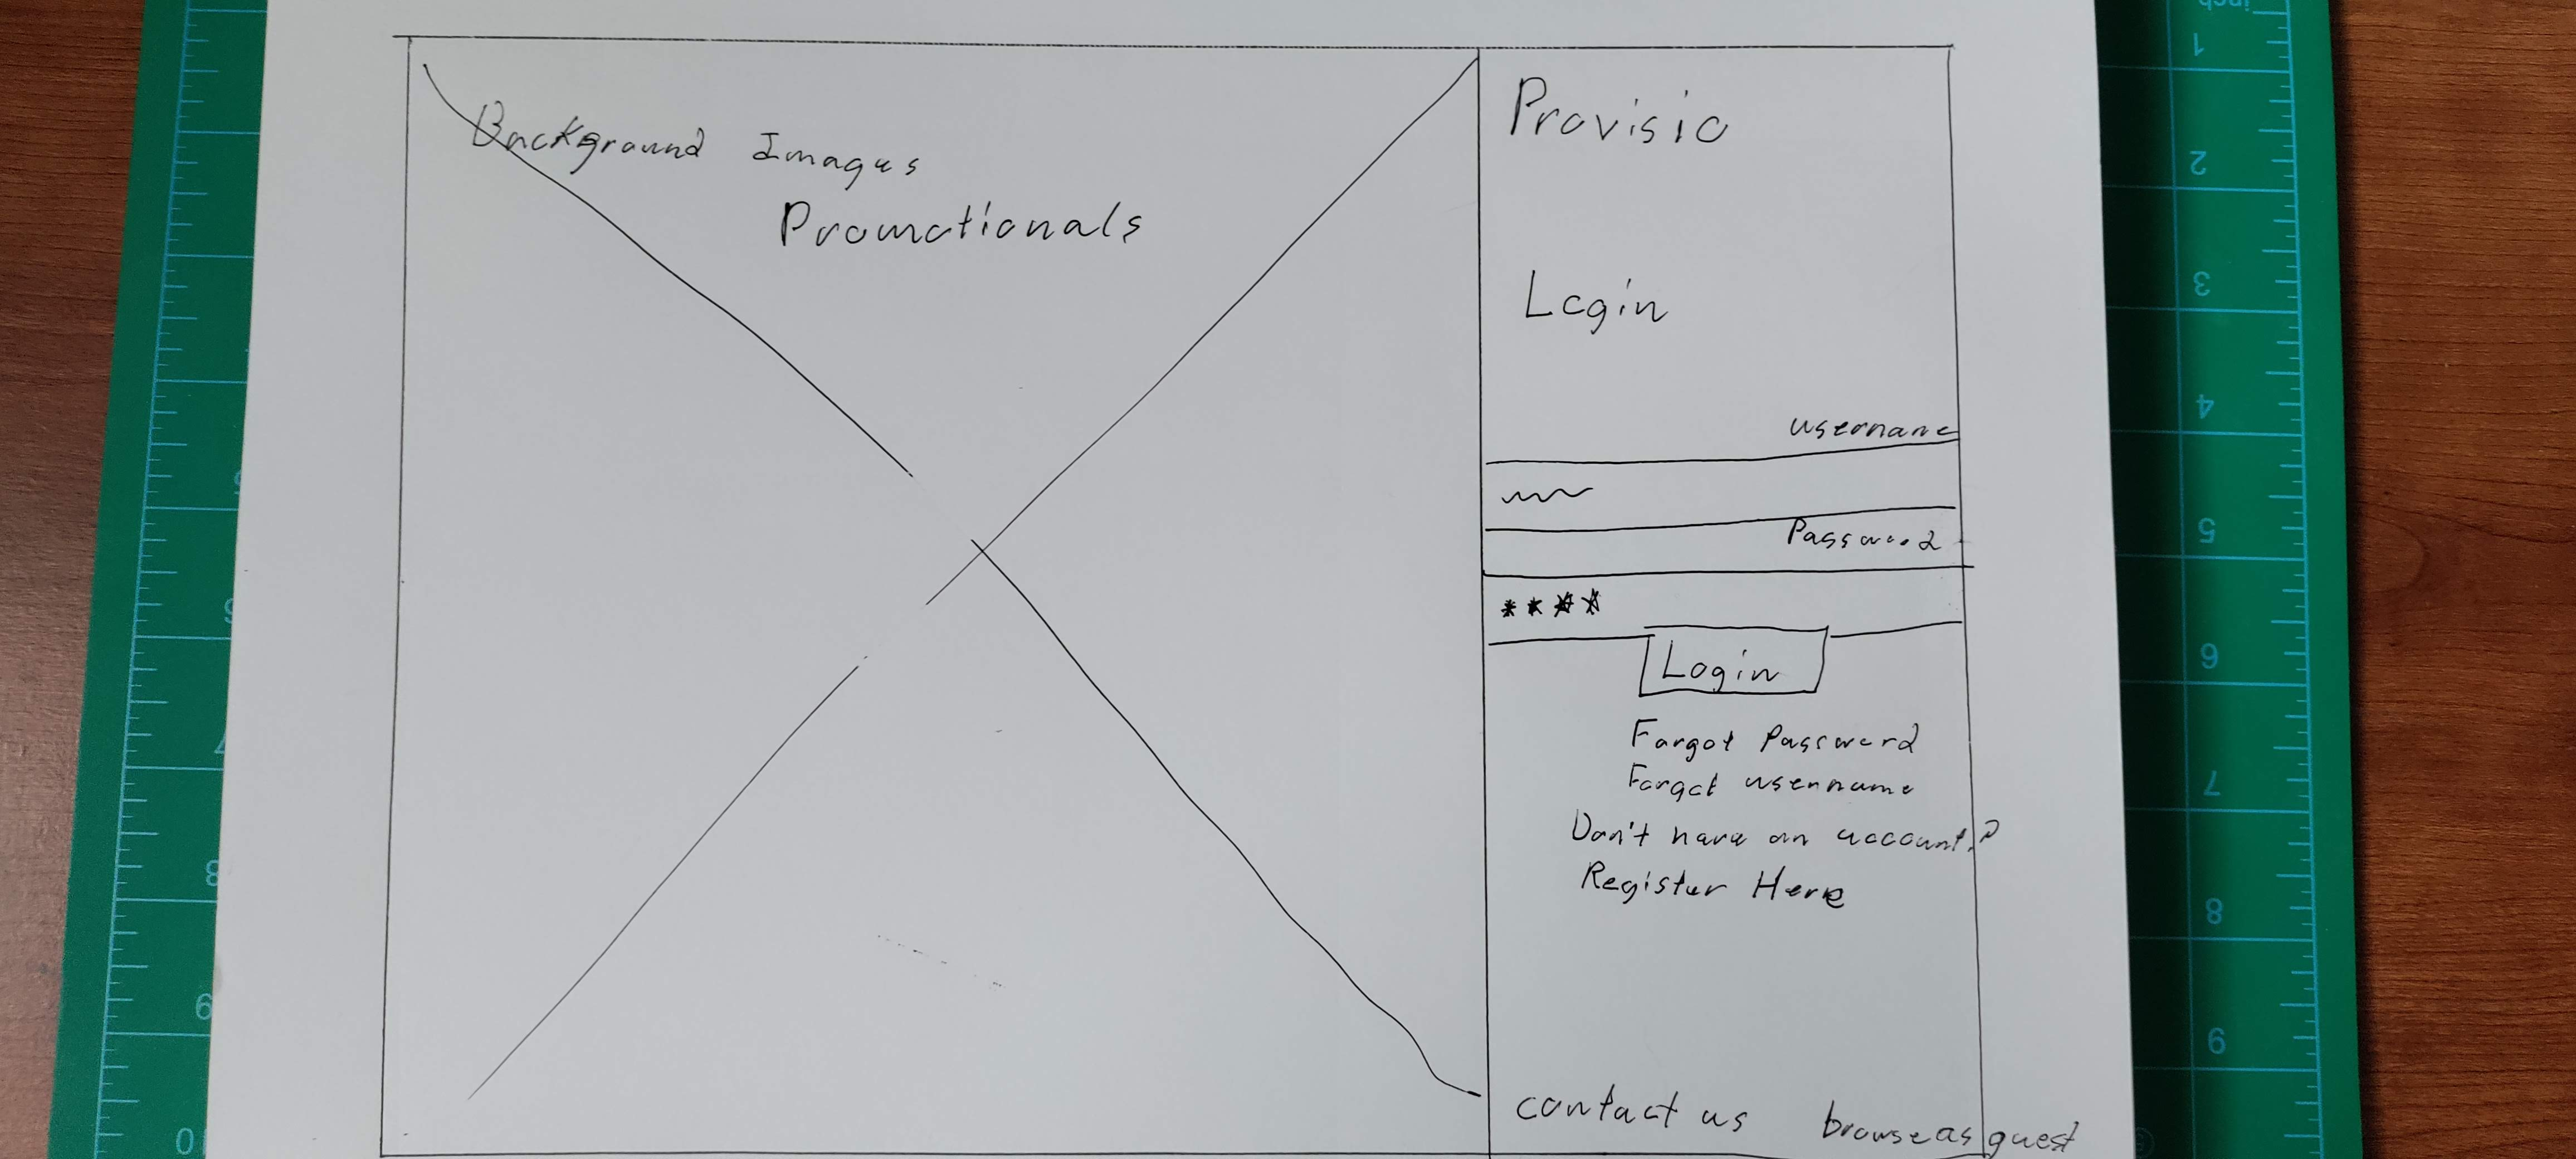 Background Images
Promotionals
Provisio
Login
username
Password
****
Login
Forgot Password
Forgot username
Don't have an account?
Register Here
contact us browse as guest
inch
1
2
3
4
5
6
7
8
9
5
6
7
8
9
10